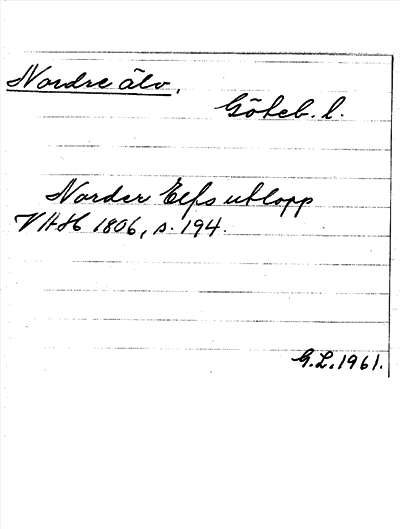 Nordre älv.
Göteb. l.
Norder Elfs utlopp
VAH 1806, s. 194.
G.L. 1961.